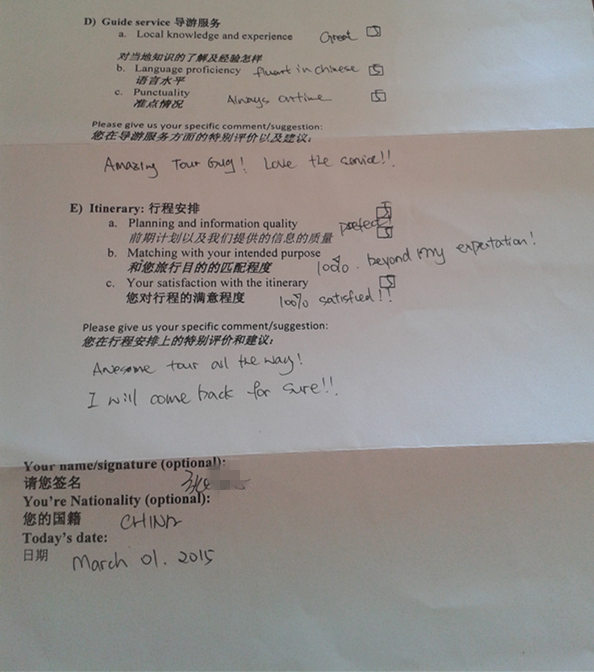 D) Guide service 导游服务
a. Local knowledge and experience Great 5
对当地知识的了解及经验怎样
b. Language proficiency fluent in chinese 5
语言水平
c. Punctuality Always ontime 5
准点情况
Please give us your specific comment/suggestion:
您在导游服务方面的特别评价以及建议:
Amazing Tour Guy! Love the service!!
E) Itinerary: 行程安排
a. Planning and information quality 5
前期计划以及我们提供的信息的质量 perfect! 5
b. Matching with your intended purpose
和您旅行目的的匹配程度 100% beyond my expertation!
c. Your satisfaction with the itinerary 5
您对行程的满意程度 100% satisfied!!
Please give us your specific comment/suggestion:
您在行程安排上的特别评价和建议:
Awesome tour all the way!
I will come back for sure!!
Your name/signature (optional):
请您签名
You're Nationality (optional):
您的国籍 CHINA
Today's date:
日期 March 01. 2015